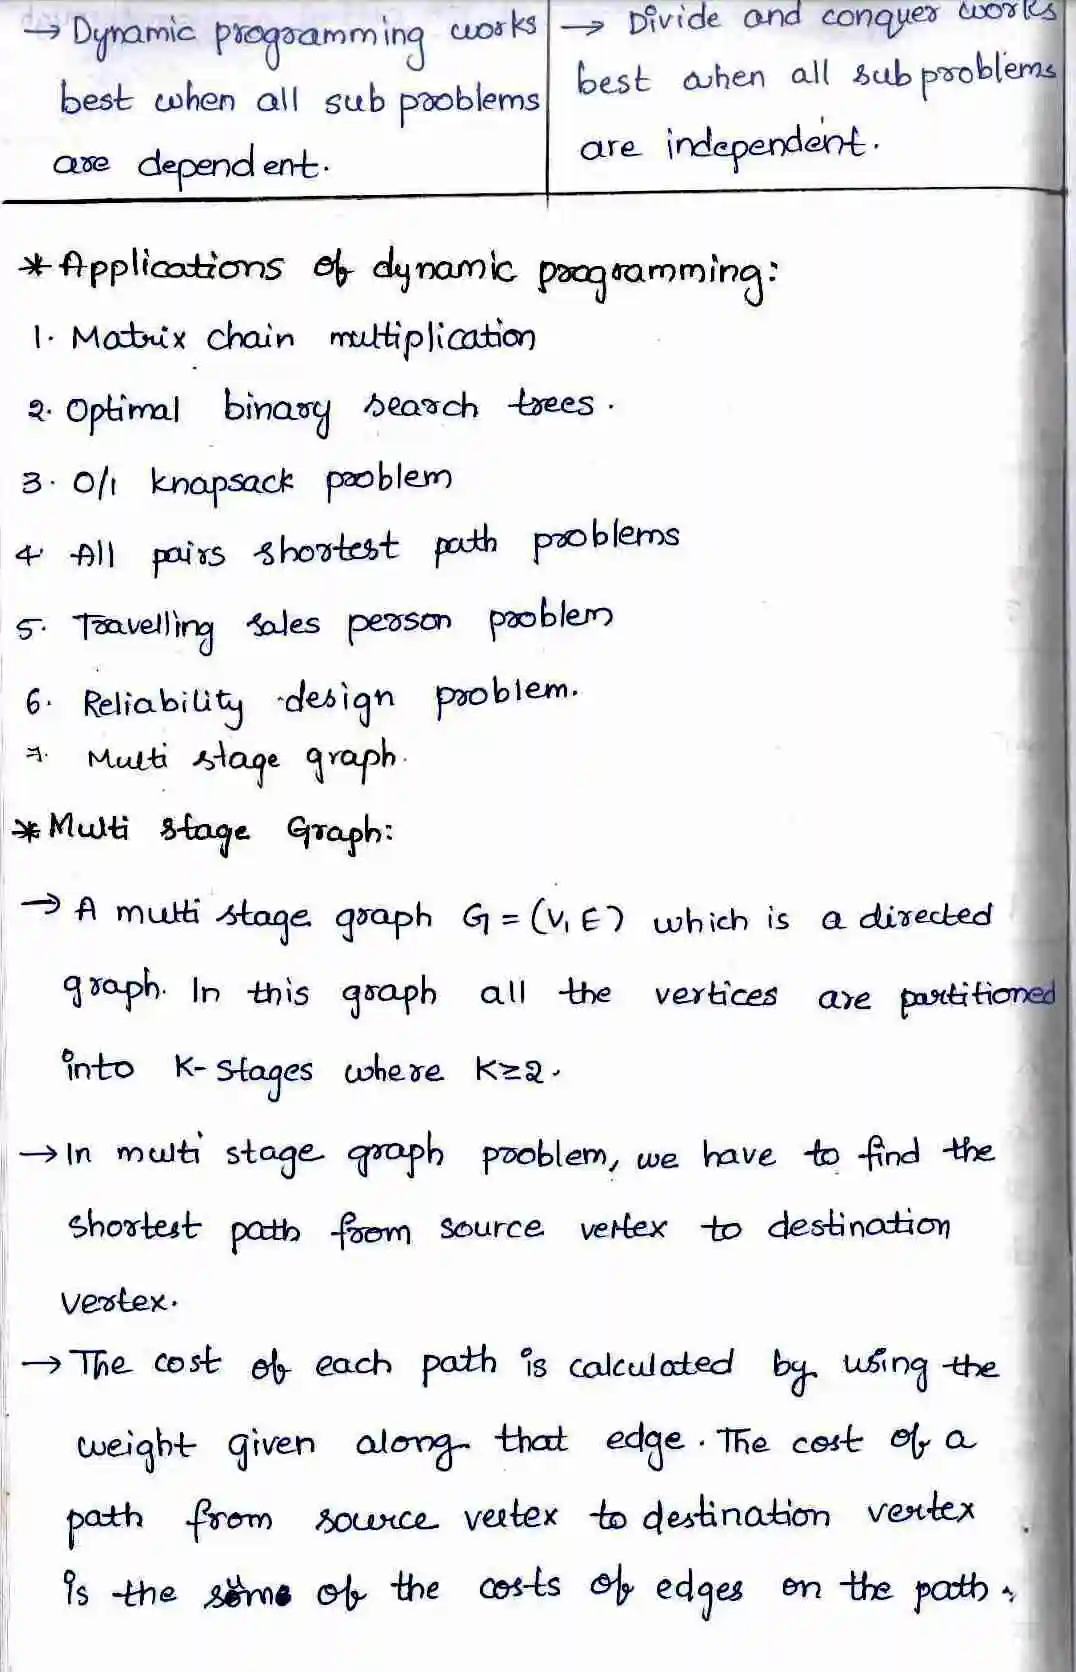 → Dynamic programming works
best when all sub problems
are dependent.
→ Divide and conquer works
best when all subproblems
are independent.
* Applications of dynamic programming:
1. Matrix chain multiplication
2. Optimal binary search trees.
3. 0/1 knapsack problem
4. All pairs shortest path problems
5. Travelling sales person problem
6. Reliability design problem.
7. Multi stage graph.
* Multi stage Graph:
→ A multi stage graph G = (V, E) which is a directed
graph. In this graph all the vertices are partitioned
into K-stages where K≥2.
→ In multi stage graph problem, we have to find the
shortest path from source vertex to destination
vertex.
→ The cost of each path is calculated by using the
weight given along that edge. The cost of a
path from source vertex to destination vertex
is the of the costs of edges on the path.